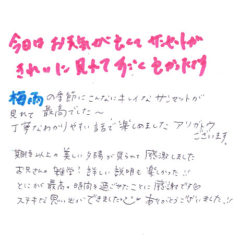 今日は お天気がよくて サンセットが
きれいに見れて すごくよかったです
梅雨の季節にこんなにキレイなサンセットが
見れて 最高でした〜
丁寧なわかりやすい話で楽しめました アリガトウ
ございます。
期待以上の美しい夕陽が見られて感謝しました
お兄さんの雑学！詳しい説明も楽しかった!!
とにかく最高な時間を過ごせたことに感謝です☺
ステキな思い出ができました ありがとうございました!!